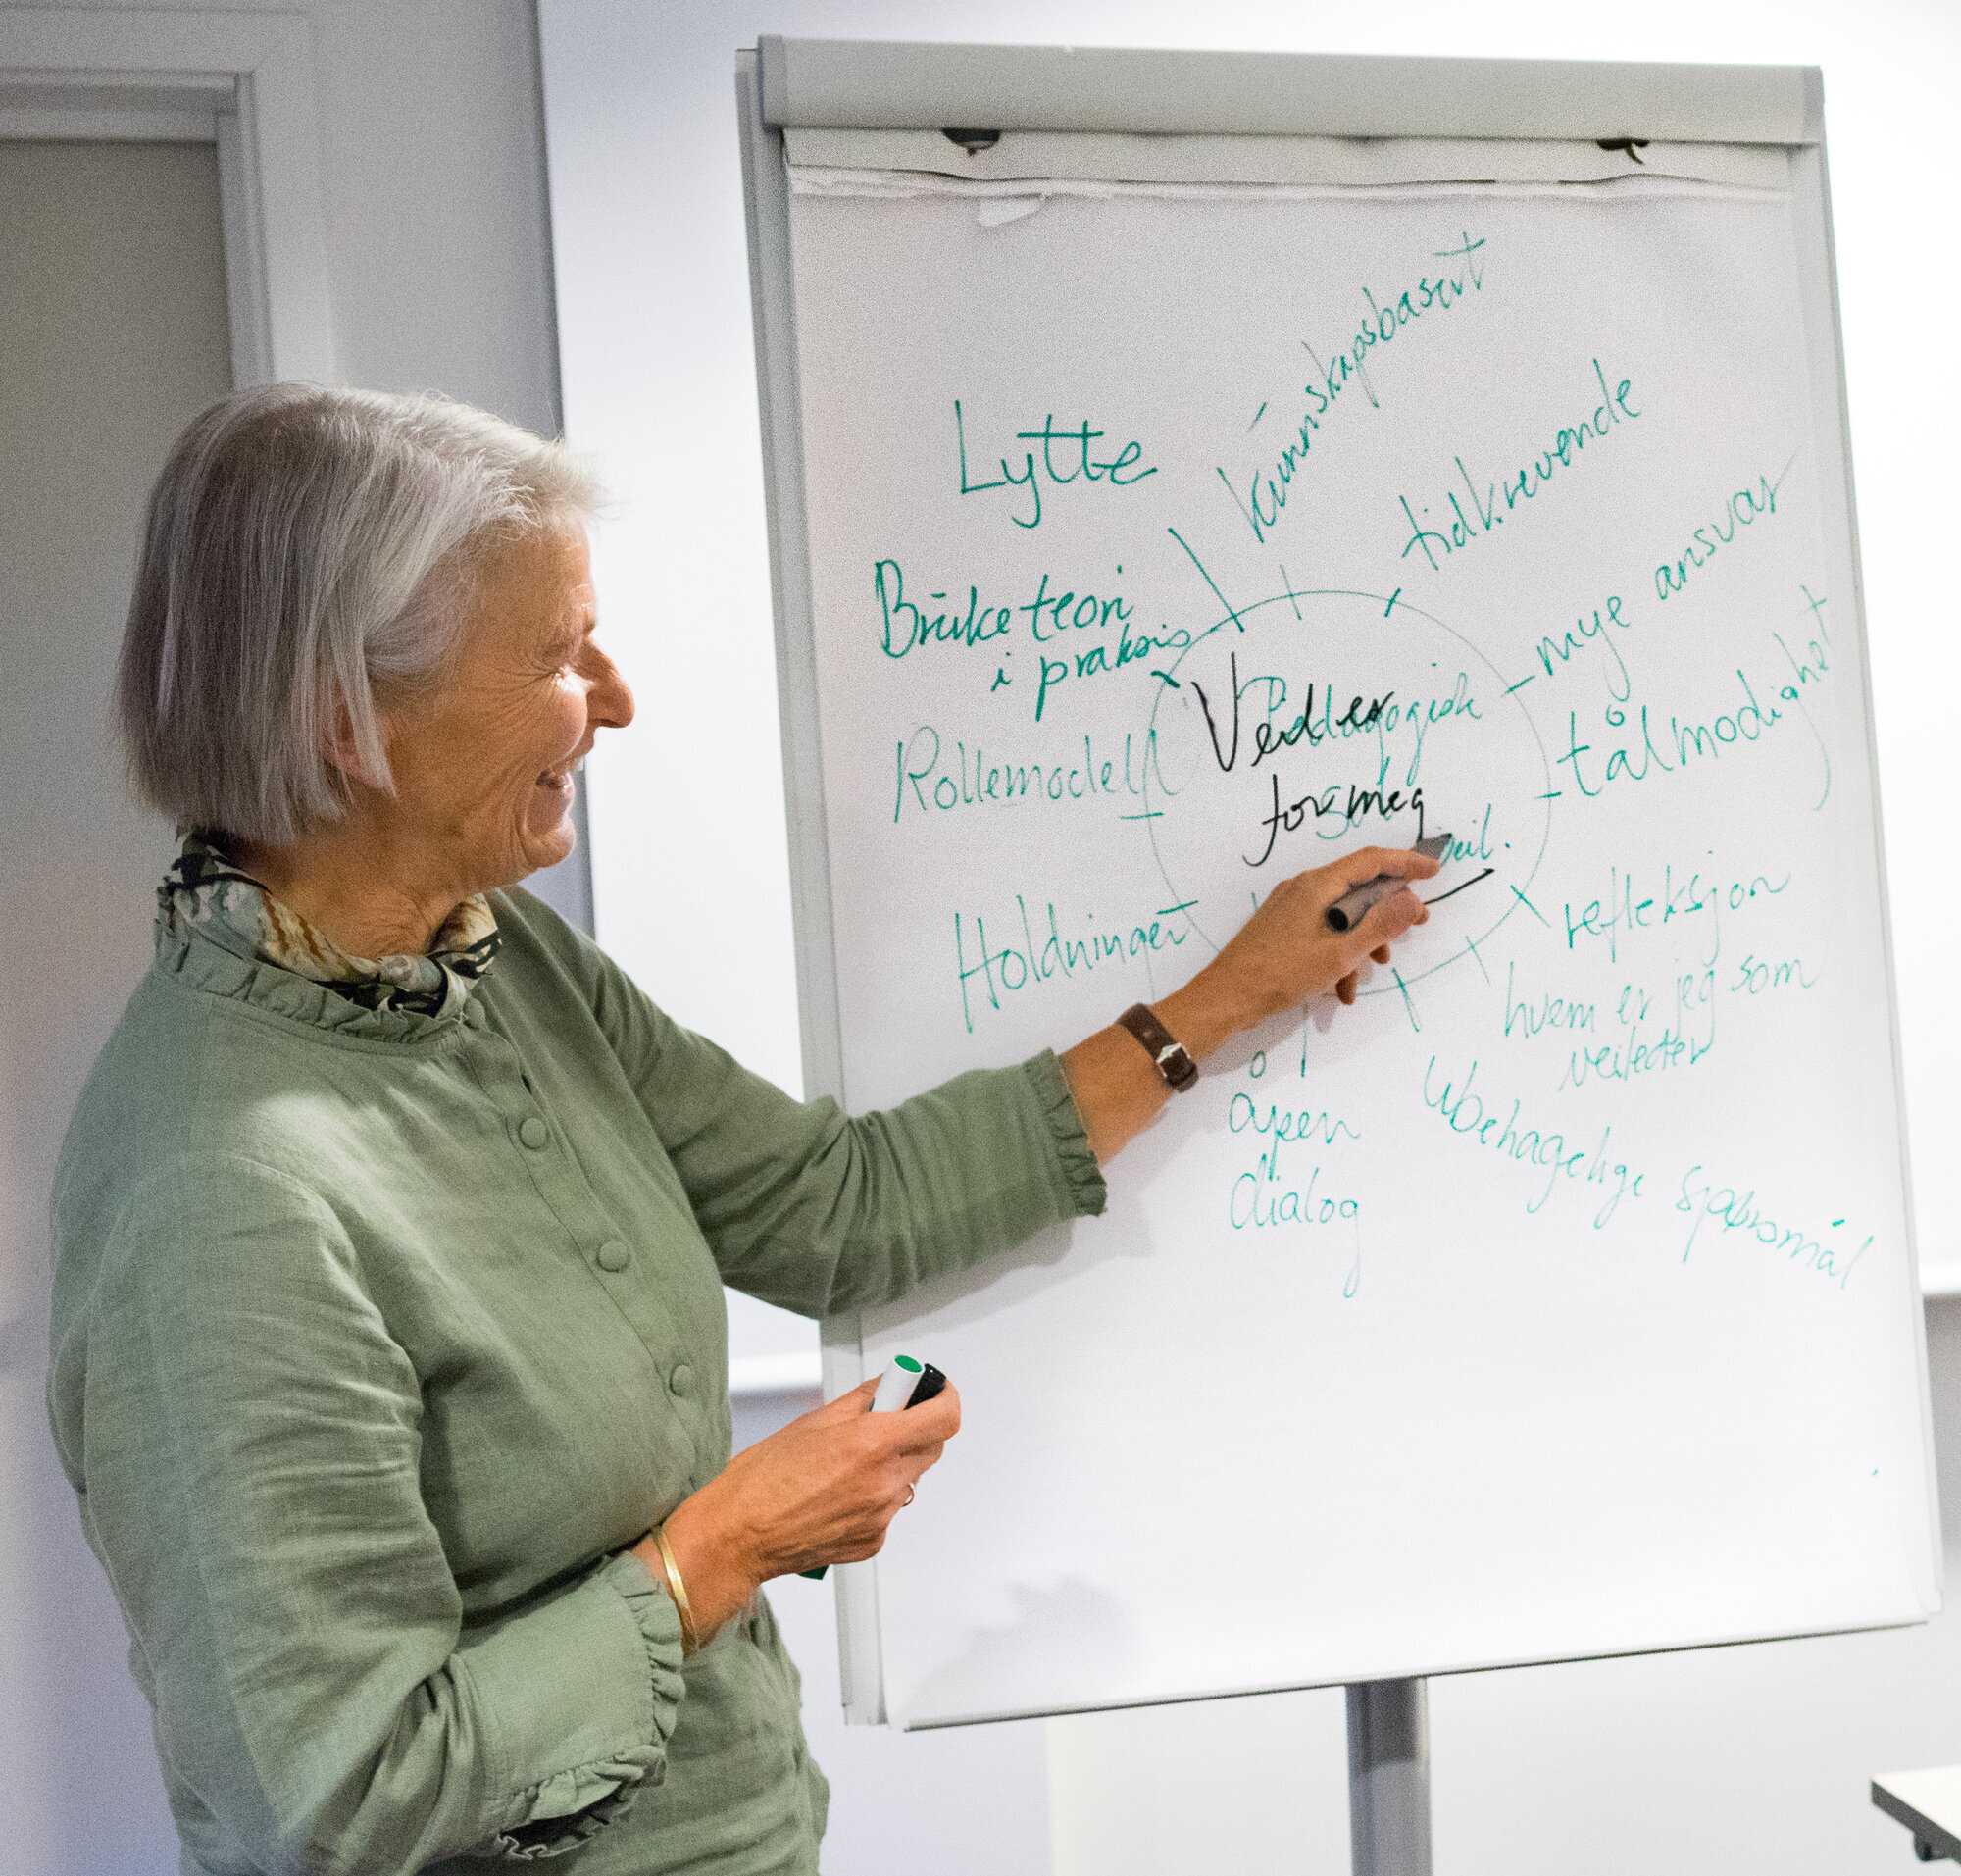 kunnskapsbasert
Lytte
tidkrevende
mye ansvar
Bruke teori
i praksis
tålmodighet
Pedagogisk
Verdier
for meg
veil.
Rollemodell
refleksjon
Holdninger
hvem er jeg som
veileder
åpen
dialog
Ubehagelige spørsmål